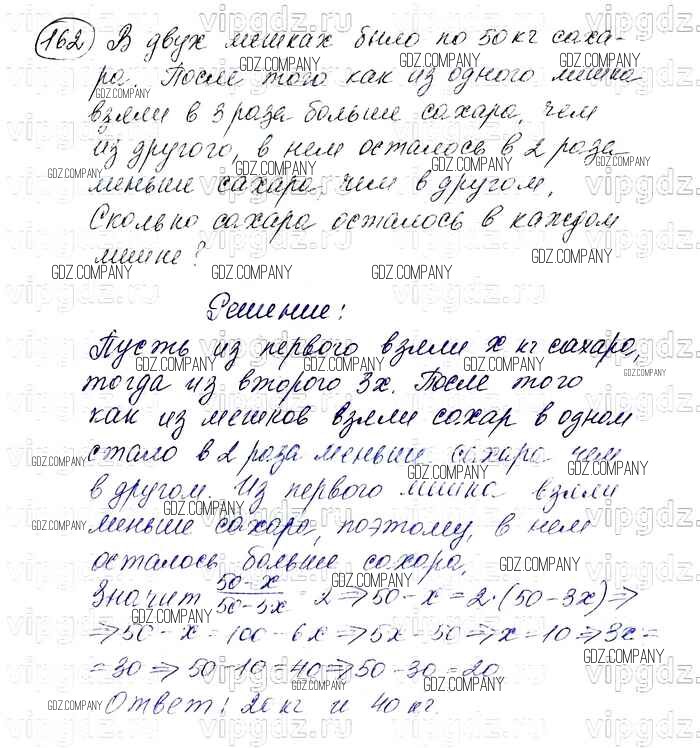 162 В двух мешках было по 50 кг саха-
ра. После того как из одного мешка
взяли в 3 раза больше сахара, чем
из другого, в нем осталось в 2 раза
меньше сахара, чем в другом.
Сколько сахара осталось в каждом
мешке?
Решение:
Пусть из первого взяли x кг сахара,
тогда из второго 3x. После того
как из мешков взяли сахар в одном
стало в 2 раза меньше сахара чем
в другом. Из первого мешка взяли
меньше сахара, поэтому, в нем
осталось больше сахара.
Значит (50-x)/(50-3x) = 2 ⇒ 50-x = 2·(50-3x) ⇒
⇒ 50-x = 100-6x ⇒ 5x = 50 ⇒ x = 10 ⇒ 3x =
= 30 ⇒ 50-10 = 40 ⇒ 50-30 = 20
Ответ: 20 кг и 40 кг.
GDZ.COMPANY
vipgdz.ru